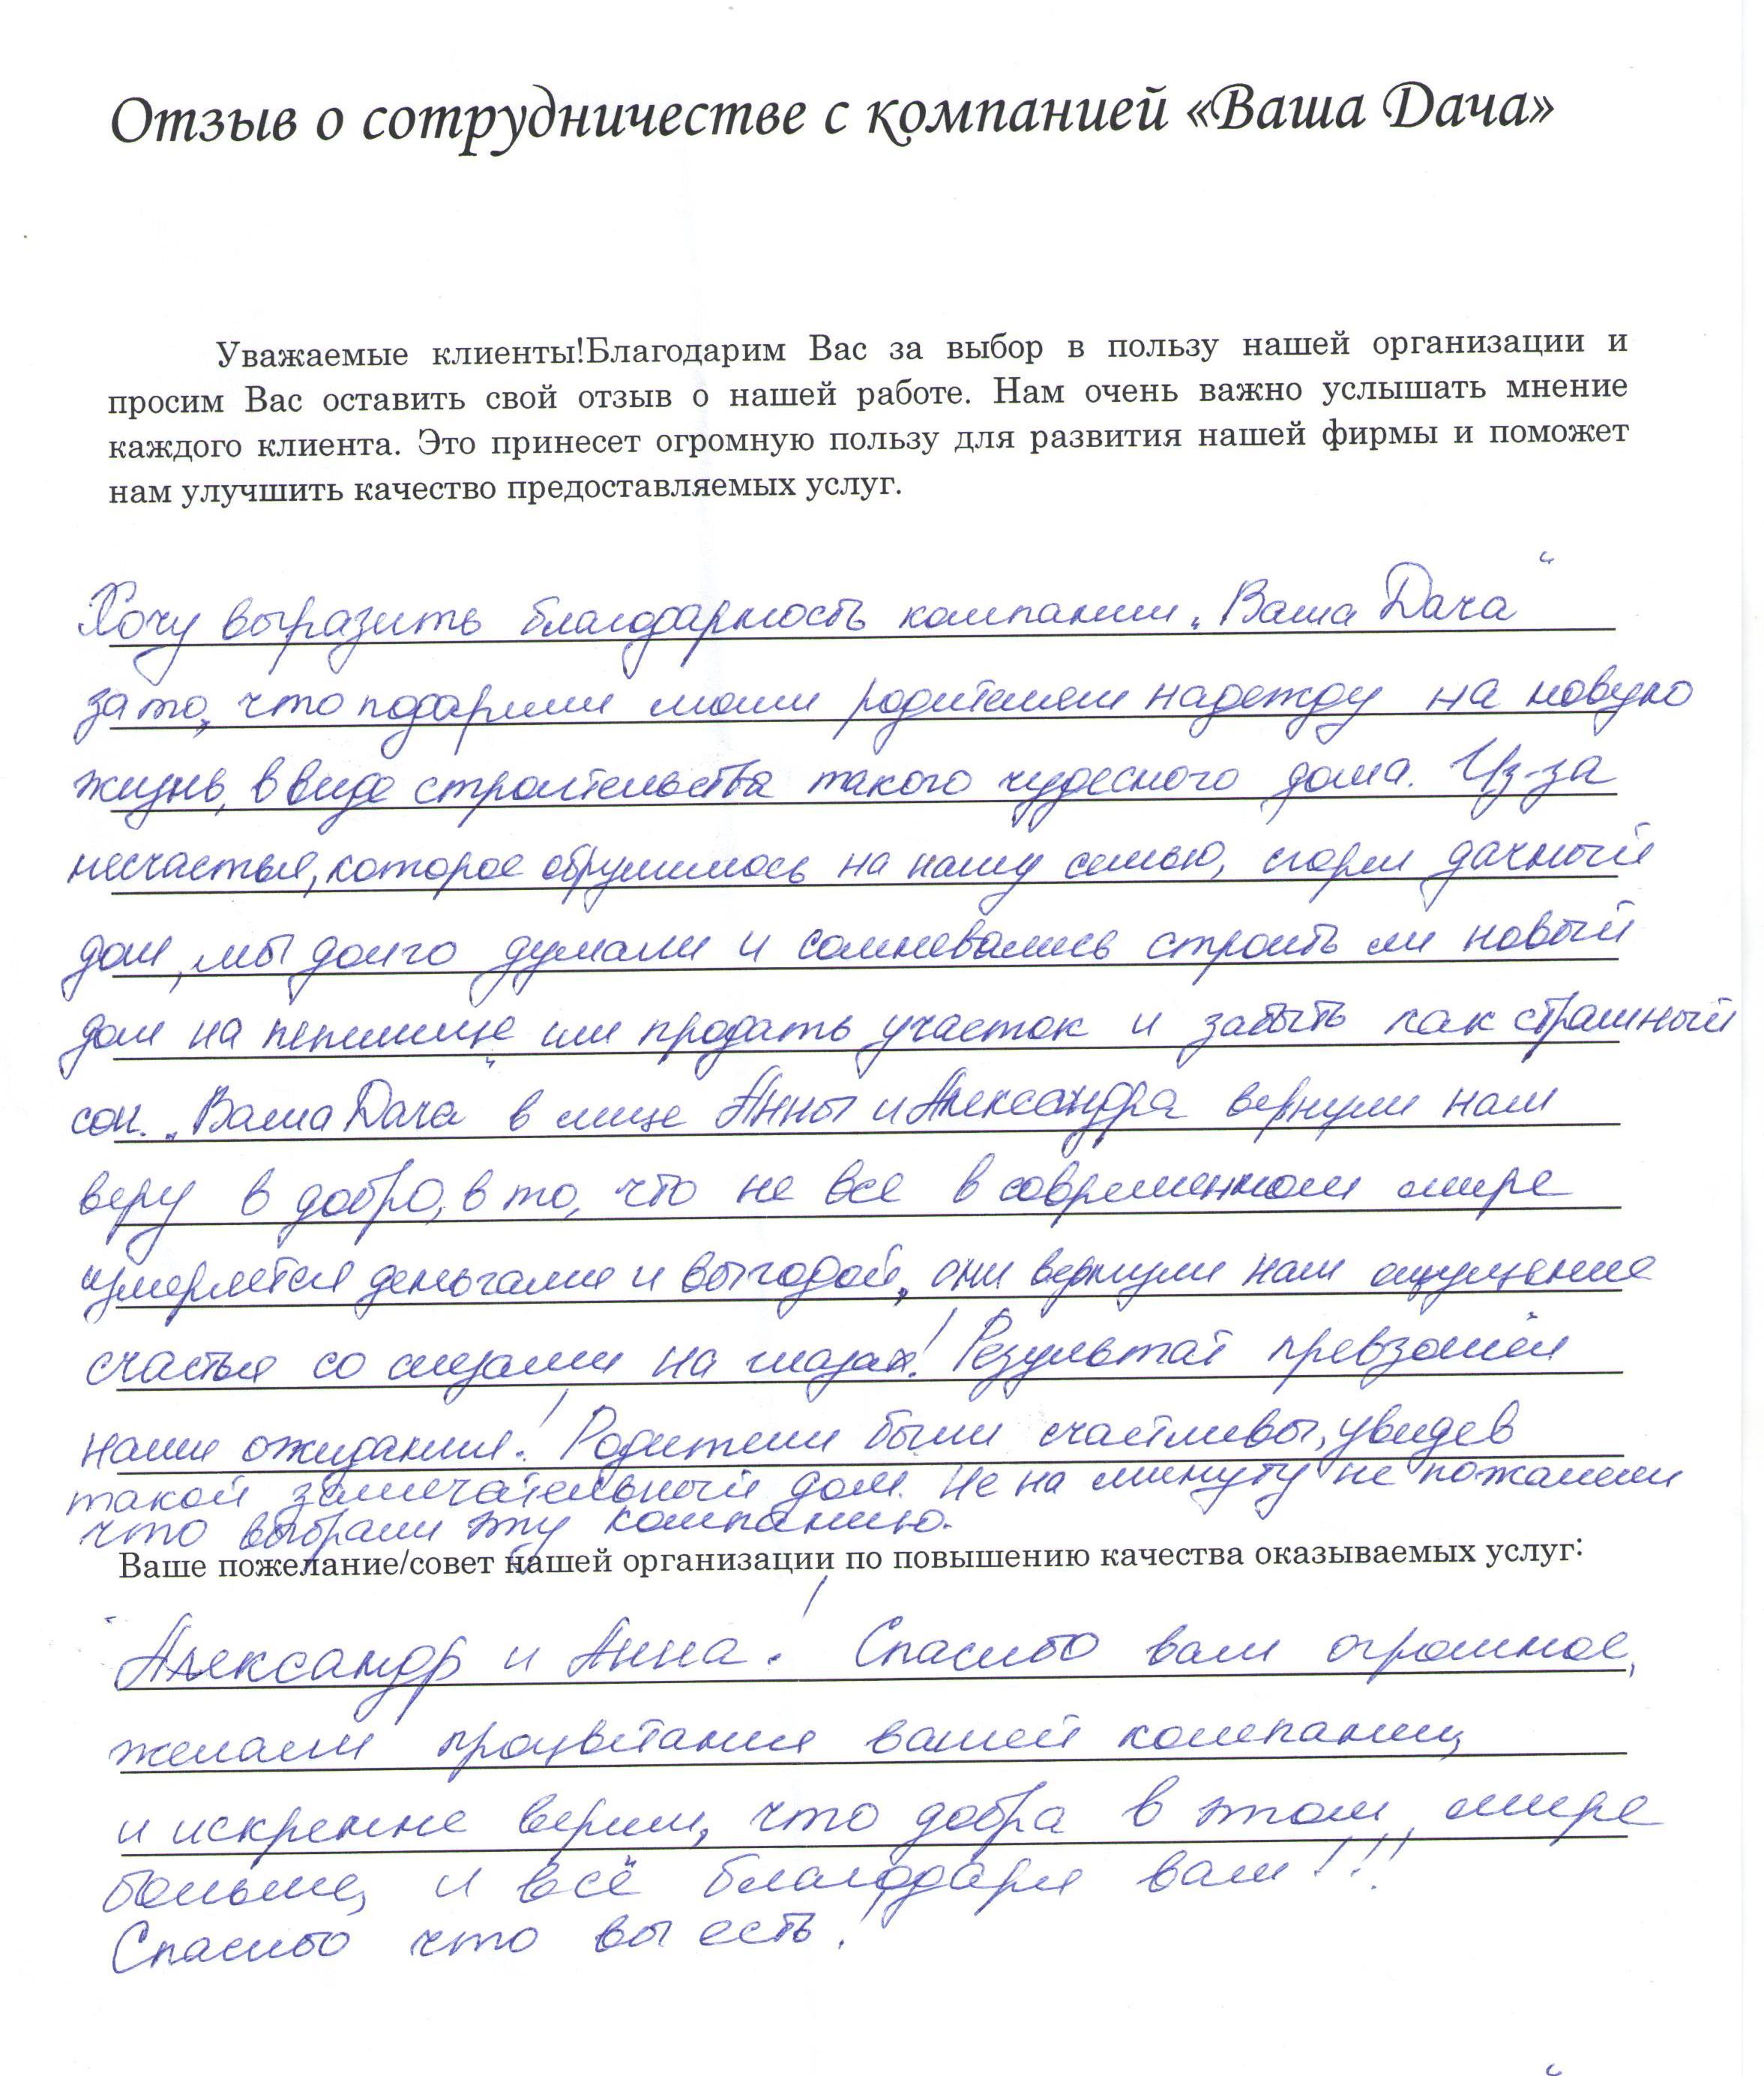 Отзыв о сотрудничестве с компанией «Ваша Дача»
Уважаемые клиенты!Благодарим Вас за выбор в пользу нашей организации и
просим Вас оставить свой отзыв о нашей работе. Нам очень важно услышать мнение
каждого клиента. Это принесет огромную пользу для развития нашей фирмы и поможет
нам улучшить качество предоставляемых услуг.
Хочу выразить благодарность компании „Ваша Дача“
за то, что подарили моим родителям надежду на новую
жизнь, в виде строительства такого чудесного дома. Из-за
несчастья, которое обрушилось на нашу семью, сгорел дачный
дом, мы долго думали и сомневались строить ли новый
дом на пепелище или продать участок и забыть как страшный
сон. „Ваша Дача“ в лице Анны и Александра вернули нам
веру в добро, в то, что не все в современном мире
измеряется деньгами и выгодой, они вернули нам ощущение
счастья со слезами на глазах! Результат превзошёл
наши ожидания! Родители были счастливы, увидев
такой замечательный дом. Не на минуту не пожалели
что выбрали эту компанию.
Ваше пожелание/совет нашей организации по повышению качества оказываемых услуг:
Александр и Анна! Спасибо вам огромное,
желаем процветания вашей компании,
и искренне верим, что добра в этом мире
больше, и всё благодаря вам!!!
Спасибо что вы есть!